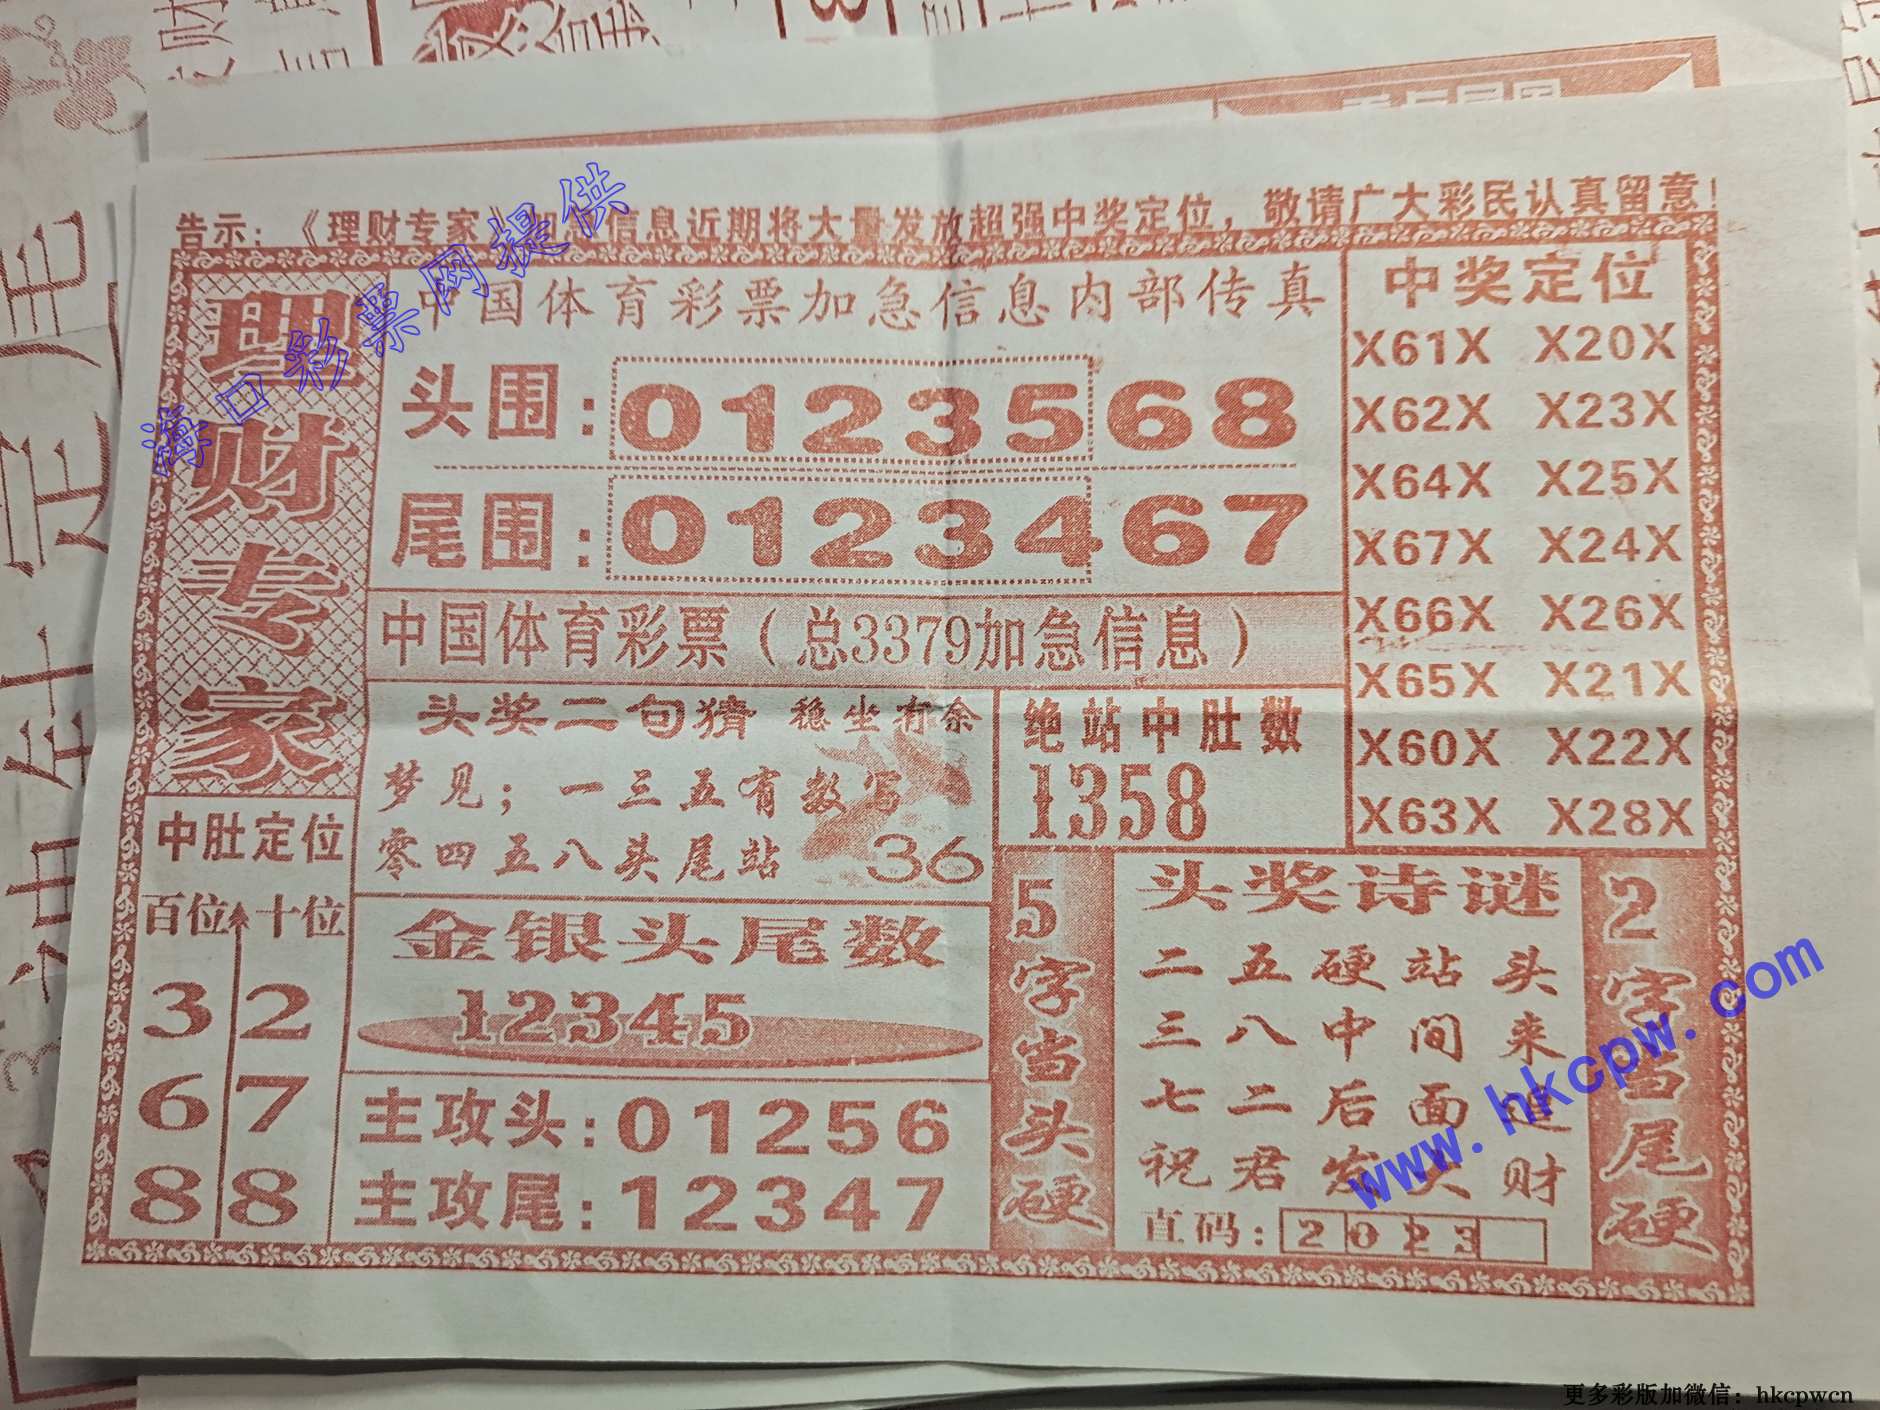 告示：《理财专家》加急信息近期将大量发放超强中奖定位，敬请广大彩民认真留意！
理财专家
中国体育彩票加急信息内部传真
头围：0123568
尾围：0123467
中国体育彩票（总3379加急信息）
中奖定位
X61X X20X
X62X X23X
X64X X25X
X67X X24X
X66X X26X
X65X X21X
X60X X22X
X63X X28X
头奖二句猜 稳坐有余
梦见；一三五有数写
零四五八头尾站
36
绝站中肚数
1358
中肚定位
百位 十位
3 2
6 7
8 8
金银头尾数
12345
主攻头：01256
主攻尾：12347
5字当头硬
头奖诗谜
二五硬站头
三八中间来
七二后面追
祝君发大财
直码：2023
2字当尾硬
海口彩票网提供
www.hkcpw.com
更多彩版加微信：hkcpwcn